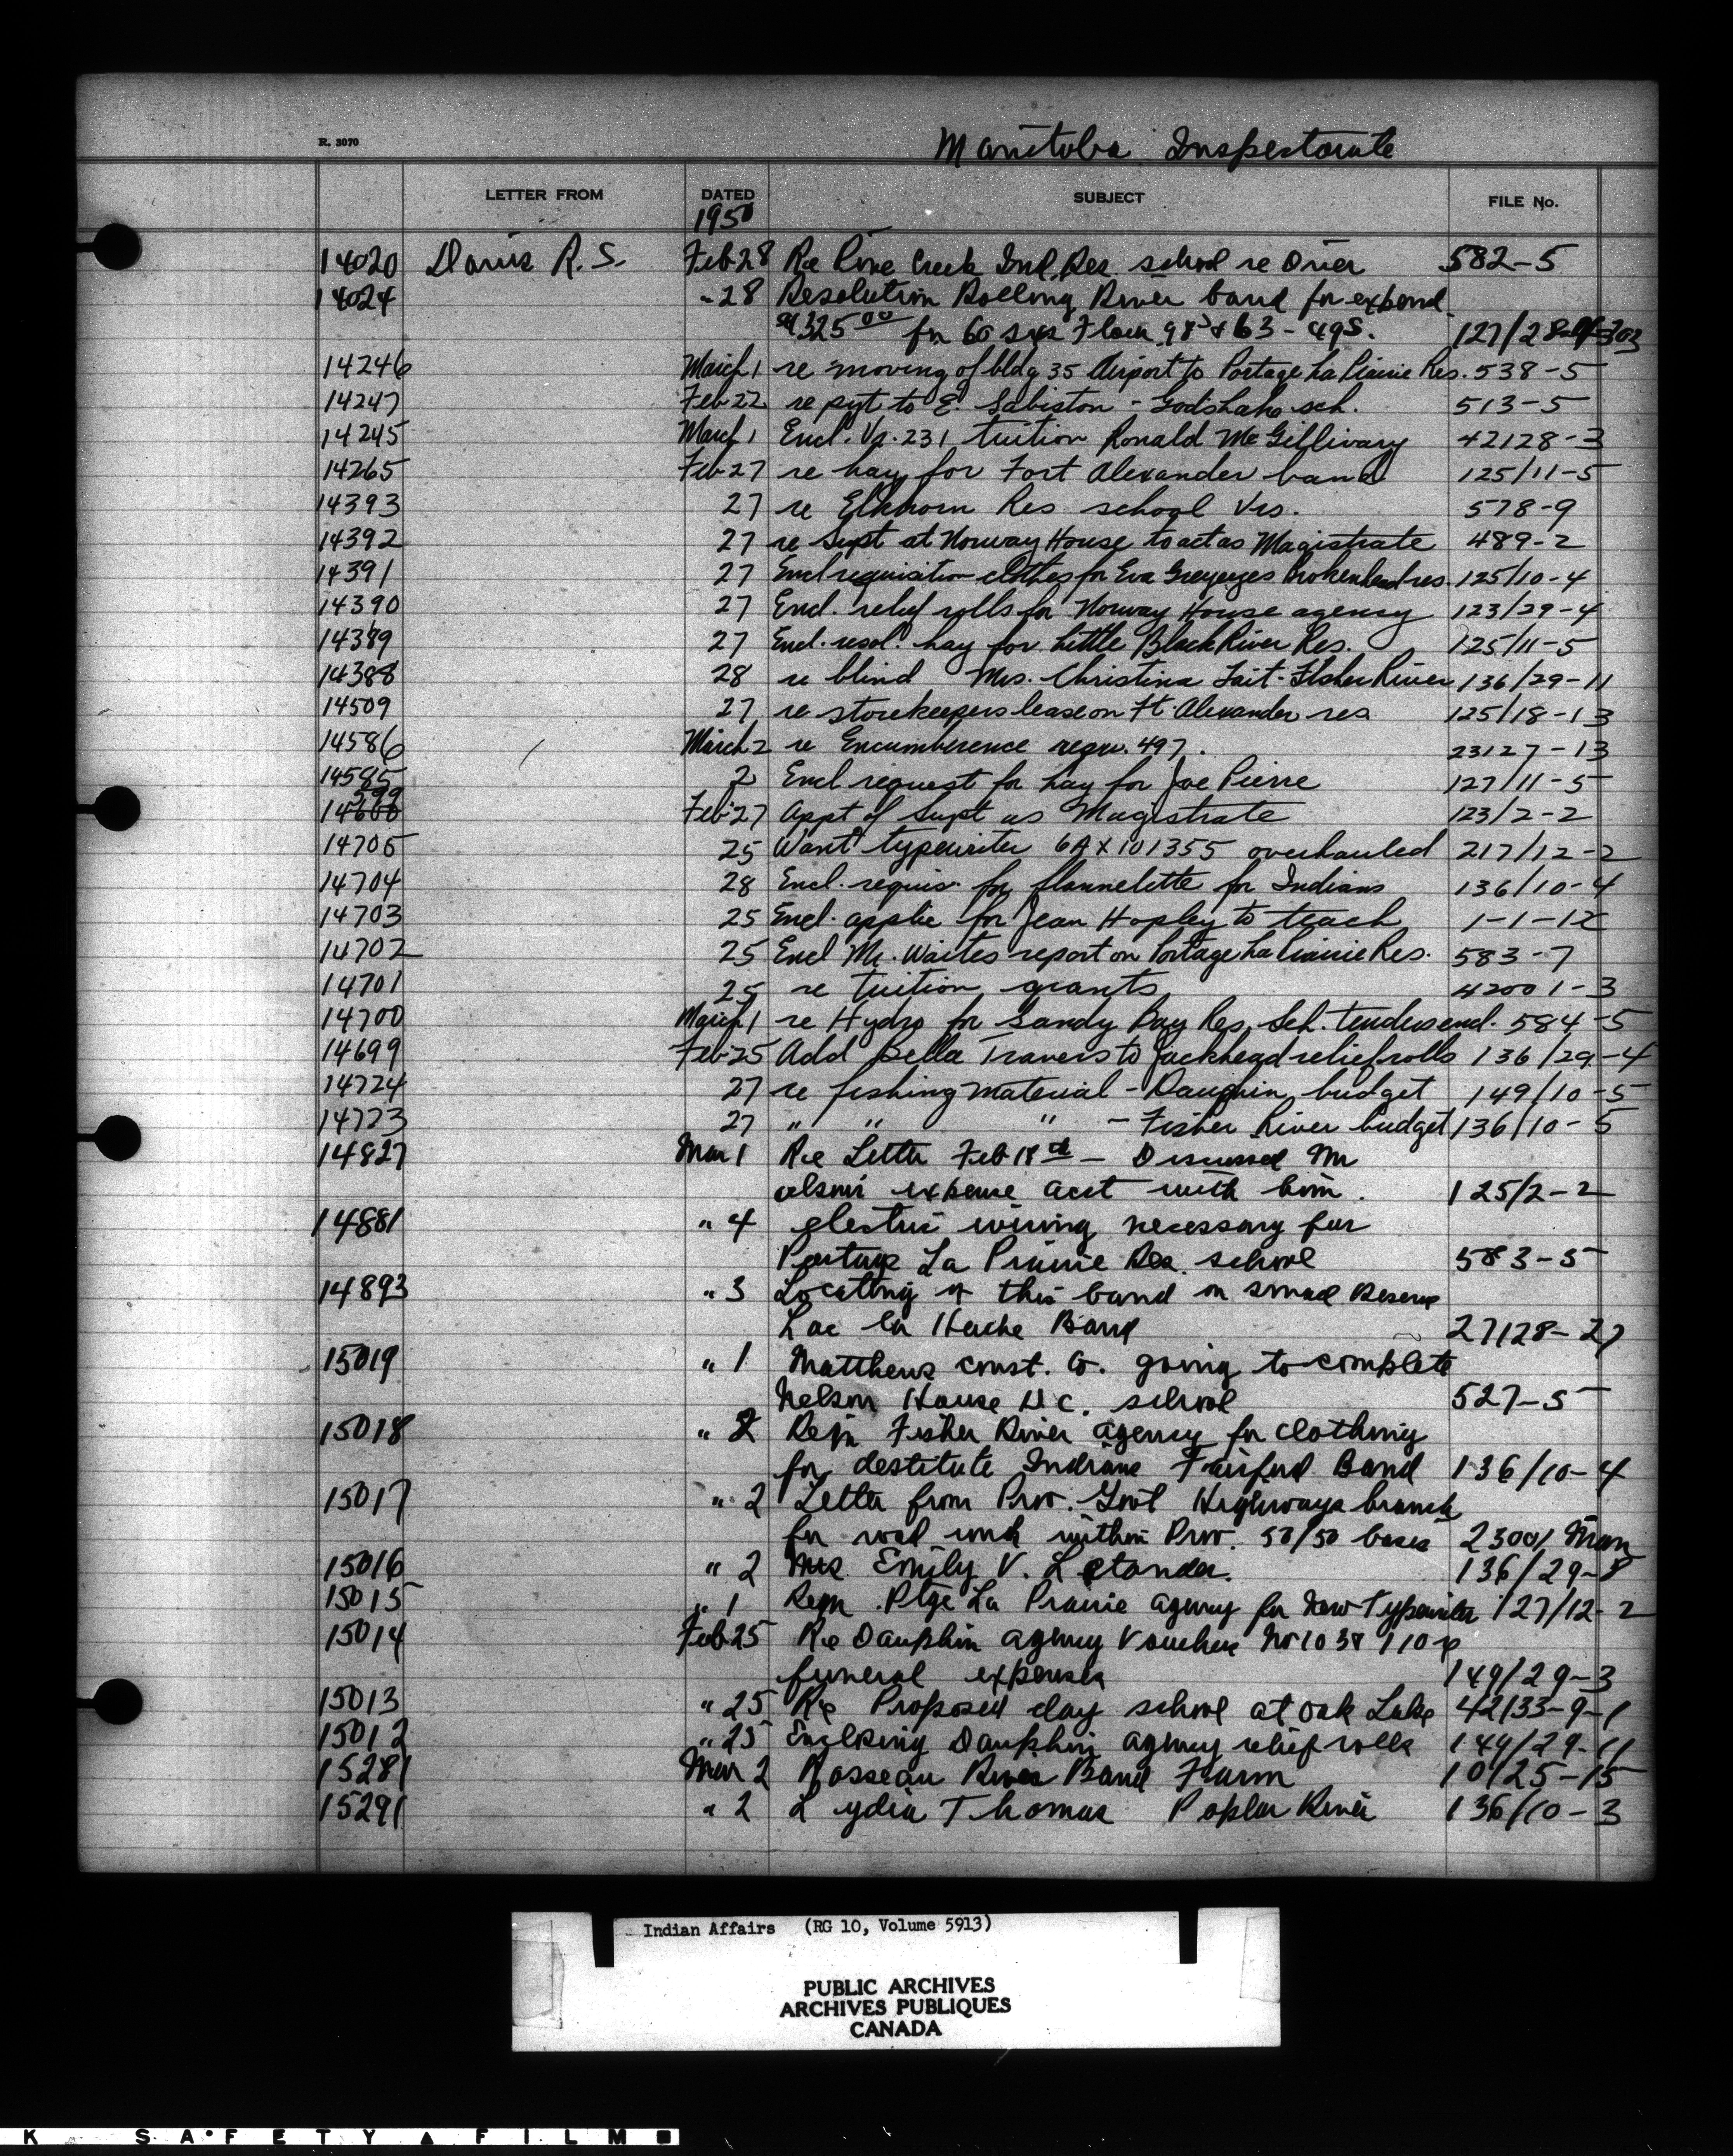 R. 3070
Manitoba Inspectorate
LETTER FROM DATED SUBJECT FILE No.
1950
14020 Davis R. S. Feb 28 Re Pine Creek Ind. Res. school re Drier 582-5
14024 " 28 Resolution Rolling River band for expend.
$325.00 for 60 sxs Flour 98s & 63 - 49s. 127/28-
14246 March 1 re moving of bldg 35 Airport to Portage La Prairie Res. 538-5
14247 Feb 22 re pyt to E. Sabiston - Gods Lake sch. 513-5
14245 March 1 Encl. Vr. 231 tuition Ronald McGillivary 42128-3
14265 Feb 27 re hay for Fort Alexander band 125/11-5
14393 27 re Elkhorn Res school Vrs. 578-9
14392 27 re Supt at Norway House to act as Magistrate 489-2
14391 27 Encl requisition clothes for Eva Greyeyes Brokenhead res. 125/10-4
14390 27 Encl. relief rolls for Norway House agency 123/29-4
14389 27 Encl. resol. hay for Little Black River Res. 125/11-5
14388 28 re blind Mrs. Christina Tait - Fisher River 136/29-11
14509 27 re storekeepers lease on Ft. Alexander res 125/18-13
14586 March 2 re Encumberence regu. 497. 23127-13
14585 2 Encl request for hay for Joe Pierre 127/11-5
599
14600 Feb 27 Appt of Supt as Magistrate 123/2-2
14705 25 Want typewriter 6AX101355 overhauled 217/12-2
14704 28 Encl. requis. for flannelette for Indians 136/10-4
14703 25 Encl. applic for Jean Hopley to teach 1-1-12
14702 25 Encl Mr. Waites report on Portage La Prairie Res. 583-7
14701 25 re tuition grants 42001-3
14700 March 1 re Hydro for Sandy Bay Res. Sch. tenders encl. 584-5
14699 Feb 25 Add Bella Travers to Jackhead relief rolls 136/29-4
14724 27 re fishing material - Dauphin budget 149/10-5
14723 27 " " " - Fisher River budget 136/10-5
14827 Mar 1 Re Letter Feb 18th - Discussed Mr
expense acct with him. 125/2-2
14881 " 4 electric wiring necessary for
Portage La Prairie Res. school 583-5
14893 " 3 Locating of this band on small Reserve
Lac La Hache Band 27128-27
15019 " 1 Matthews const. Co. going to complete
Nelson House R.C. school 527-5
15018 " 2 Reqn Fisher River agency for clothing
for destitute Indians Fairford Band 136/10-4
15017 " 2 Letter from Prov. Govt Highways branch
for road work within Prov. 50/50 basis 23001 Man
15016 " 2 Mrs. Emily V. Letander. 136/29-8
15015 " 1 Reqn. Ptge La Prairie agency for New Typewriter 127/12-2
15014 Feb 25 Re Dauphin agency Vouchers No 1038
funeral expenses 149/29-3
15013 " 25 Re Proposed day school at Oak Lake 42133-9-1
15012 " 25 Enclosing Dauphin agency relief rolls 149/29-11
15281 Mar 2 Rosseau River Band Farm 10125-15
15291 " 2 Lydia Thomas Poplar River 136/10-3
Indian Affairs (RG 10, Volume 5913)
PUBLIC ARCHIVES
ARCHIVES PUBLIQUES
CANADA
K SAFETY ▲ FILM ■